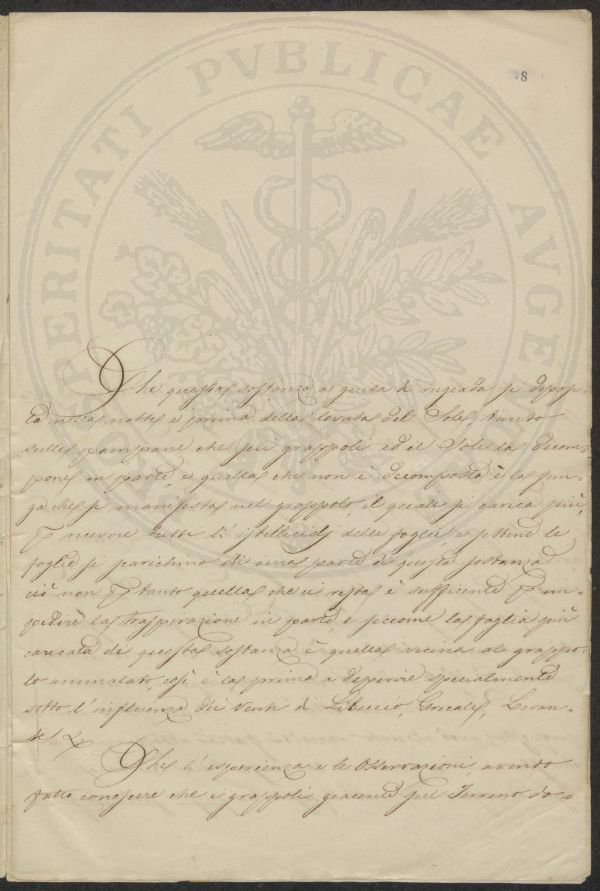 8
PROSPERITATI PVBLICAE AVGENDAE
Che questa sostanza a guisa di rugiada si deposi-
ta nella notte e prima della levata del Sole, tanto
sulle pampane che sui grappoli ed il Sole la decom-
pone in parte, e quella che non è decomposta è la fun-
ga che si manifesta nel grappolo, il quale si carica più,
p ricevere tutti li stillicidj delle foglie e sebbene le
foglie si parichino di una parte di questa sostanza
ciò non p tanto quella che vi resta è sufficiente p im-
pedire la traspirazione in parte e siccome la foglia più
caricata di questa sostanza è quella vicina al grappo-
lo ammalato, così è la prima a deperire specialmente
sotto l'influenza dei Venti di Libeccio, Grecale, Levan-
te &
Che l'esperienza e le Osservazioni, avendo
fatto conoscere che i grappoli giacenti sul Terreno do-